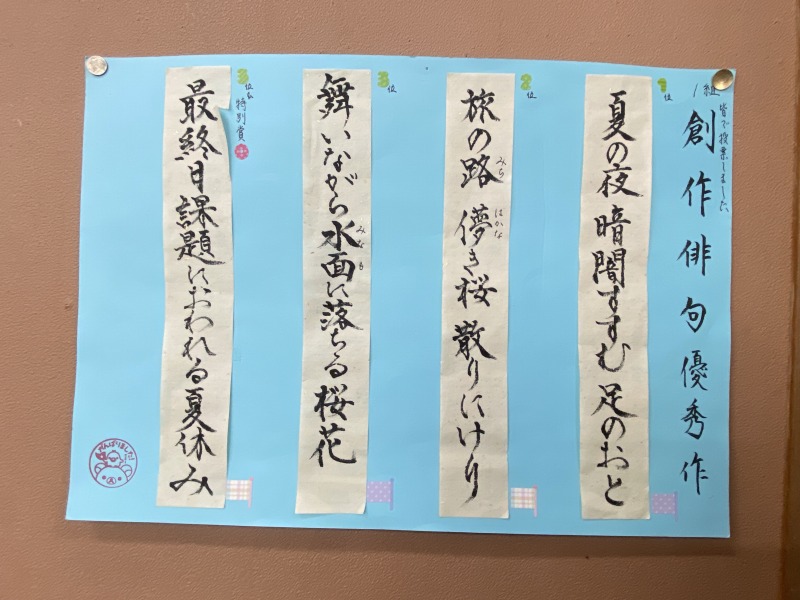 1組
創作俳句優秀作
皆で投票しました。
1位
夏の夜 暗闇すすむ 足のおと
2位
旅の路 儚き桜 散りにけり
みち
はかな
3位
舞いながら水面に落ちる桜花
みなも
3位&特別賞
最終日課題におわれる夏休み
がんばりました!